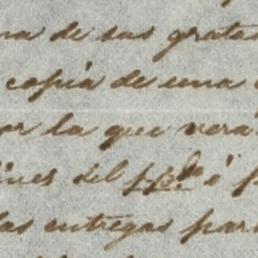 na de sus gratas
copia de una
or la que verá
ines del ppdo ó
las entregas par